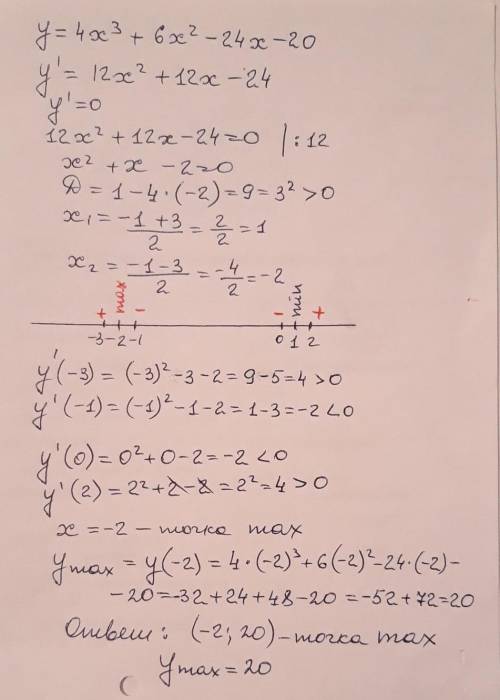 y = 4x³ + 6x² - 24x - 20
y' = 12x² + 12x - 24
y' = 0
12x² + 12x - 24 = 0 | : 12
x² + x - 2 = 0
D = 1 - 4 · (-2) = 9 = 3² > 0
x₁ = (-1 + 3)/2 = 2/2 = 1
x₂ = (-1 - 3)/2 = -4/2 = -2
+ max - - min +
-3 -2 -1 0 1 2
y'(-3) = (-3)² - 3 - 2 = 9 - 5 = 4 > 0
y'(-1) = (-1)² - 1 - 2 = 1 - 3 = -2 < 0
y'(0) = 0² + 0 - 2 = -2 < 0
y'(2) = 2² + 2 - 2 = 2² = 4 > 0
x = -2 - точка max
y max = y(-2) = 4 · (-2)³ + 6(-2)² - 24 · (-2) -
- 20 = -32 + 24 + 48 - 20 = -52 + 72 = 20
Ответ: (-2; 20) - точка max
y max = 20